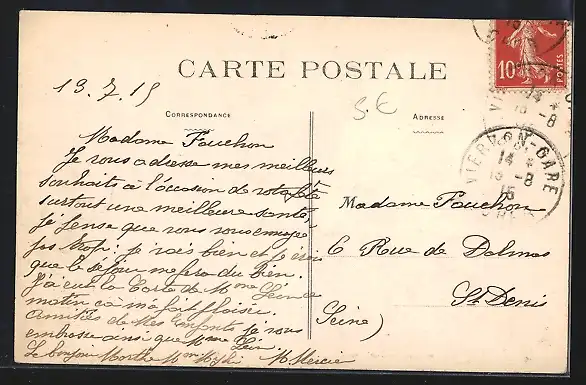 13.7.15
CARTE POSTALE
10
POSTES
5 €
CORRESPONDANCE
ADRESSE
VIERZON-GARE
14 *
13 -8
15
CHER
14 *
13 -8
Madame Fouchon
Je vous adresse mes meilleurs
souhaits à l'occasion de votre fête
surtout une meilleure santé,
je pense que vous vous
je vais bien et je crois
que le séjour me fera du bien.
J'ai eu la carte de Mme
matin ça m'a fait plaisir.
Amitiés de Mes Enfants je vous
embrasse ainsi que Mme
Le bonjour Mme M Mercier
Madame Fouchon
6 Rue de Dalmas
St Denis
Seine)